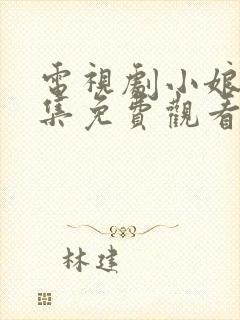 電視劇小娘
集免費觀看
林建